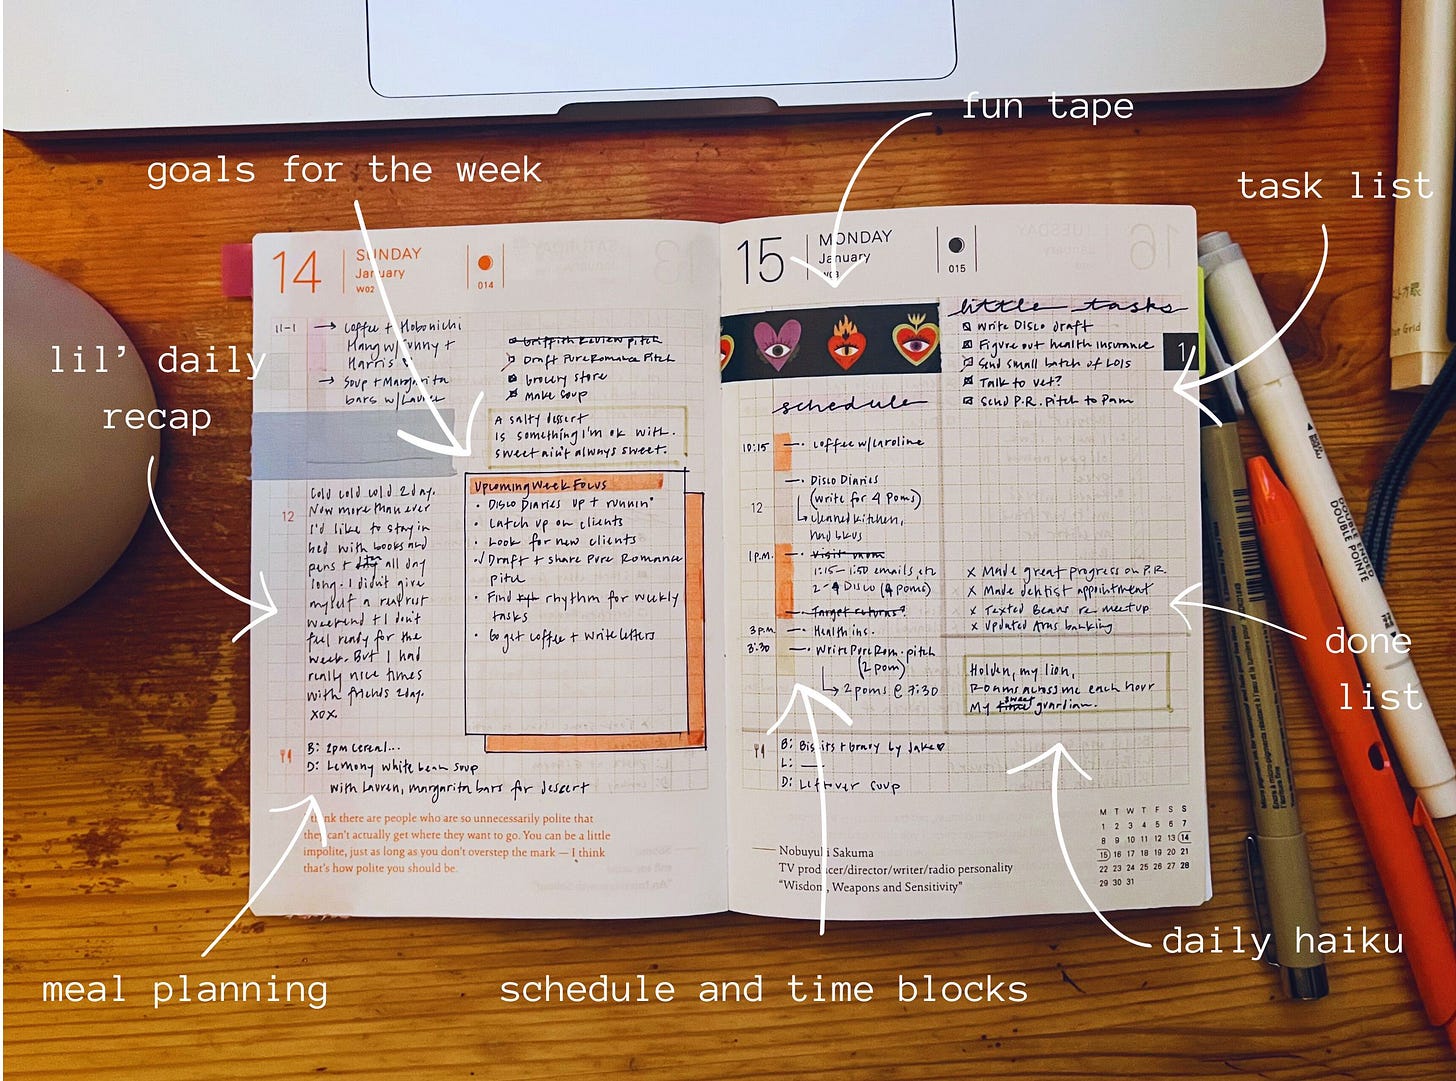 fun tape
goals for the week
task list
lil' daily
recap
done
list
daily haiku
meal planning
schedule and time blocks
14
SUNDAY
January
W02
014
11-1
→ Coffee + Hobonichi
Hang w/ Jenny +
Harris
→ Soup + Margarita
bars w/ Lauren
Griffith Review pitch
Draft Pure Romance Pitch
Grocery store
Make soup
A salty dessert
Is something I'm ok with.
Sweet ain't always sweet.
Cold cold cold 2day.
Now more than ever
12
I'd like to stay in
bed with books and
pens + all day
long. I didn't give
myself a real rest
weekend + I don't
feel ready for the
week. But I had
really nice times
with friends 2day.
xox.
Upcoming Week Focus
• Disco Diaries up + runnin'
• Catch up on clients
• Look for new clients
√ Draft + share Pure Romance
pitch
• Find rhythm for weekly
tasks
• Go get coffee + write letters
B: 2pm cereal...
D: Lemony white bean soup
with Lauren, margarita bars for dessert
I think there are people who are so unnecessarily polite that
they can't actually get where they want to go. You can be a little
impolite, just as long as you don't overstep the mark — I think
that's how polite you should be.
15
MONDAY
January
W03
015
little tasks
Write Disco draft
Figure out health insurance
Send small batch of LOIs
Talk to vet?
Send P.R. pitch to Pam
1
schedule
10:15
Coffee w/ Caroline
Disco Diaries
(write for 4 Poms)
12
↳ cleaned kitchen,
1 P.M.
1:15–1:50 emails, etc
2-4 Disco (4 Poms)
Target returns?
3 P.M.
Health ins.
3:30
Write Pure Rom. pitch
(2 pom)
↳ 2 poms @ 7:30
x Made great progress on P.R.
x Made dentist appointment
x Texted Beans re meetup
x Updated Arms banking
Holden, my lion,
Roams across me each hour
My sweet guardian.
B: Biscuits + Gravy by Jake ♥
L: —
D: Leftover soup
Nobuyuki Sakuma
TV producer/director/writer/radio personality
"Wisdom, Weapons and Sensitivity"
M T W T F S S
1 2 3 4 5 6 7
8 9 10 11 12 13 14
15 16 17 18 19 20 21
22 23 24 25 26 27 28
29 30 31
DOUBLE ENDED
DOUBLE POINTE